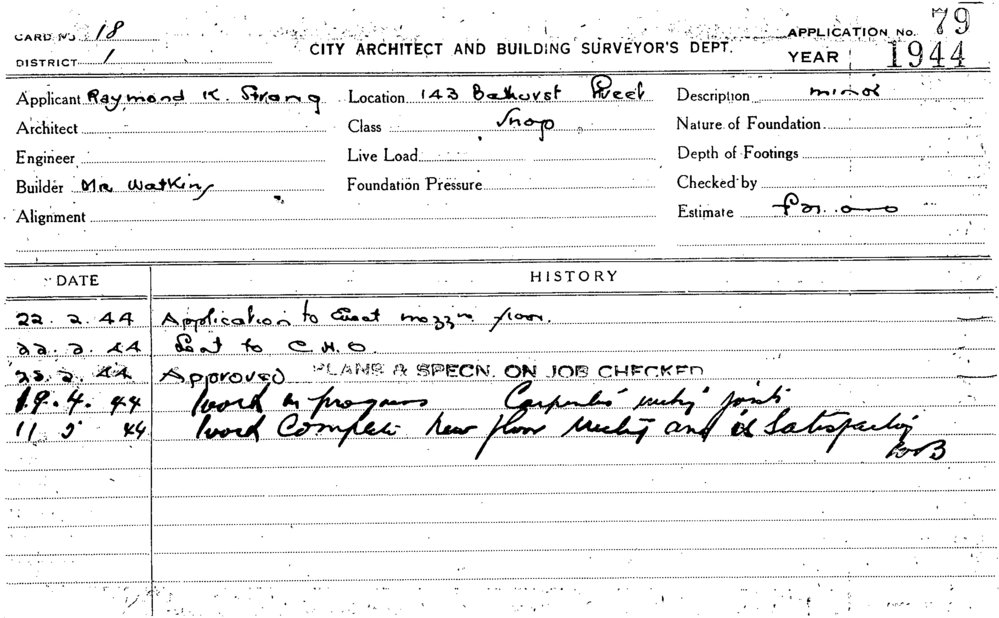 CARD NO 18
DISTRICT 1
CITY ARCHITECT AND BUILDING SURVEYOR'S DEPT.
APPLICATION No. 79
YEAR 1944
Applicant Raymond K. Strang Location 143 Bathurst Street Description minor
Architect Class Shop Nature of Foundation
Engineer Live Load Depth of Footings
Builder Mr Watkins Foundation Pressure Checked by
Alignment Estimate
DATE HISTORY
22.2.44 Application to Erect mezzn floor.
22.2.44 Sent to C.H.O.
2.44 Approved PLANS & SPECN. ON JOB CHECKED
19.4.44 Work in progress Carpenters joists
11 5 44 Work Complete New floor and is Satisfactory